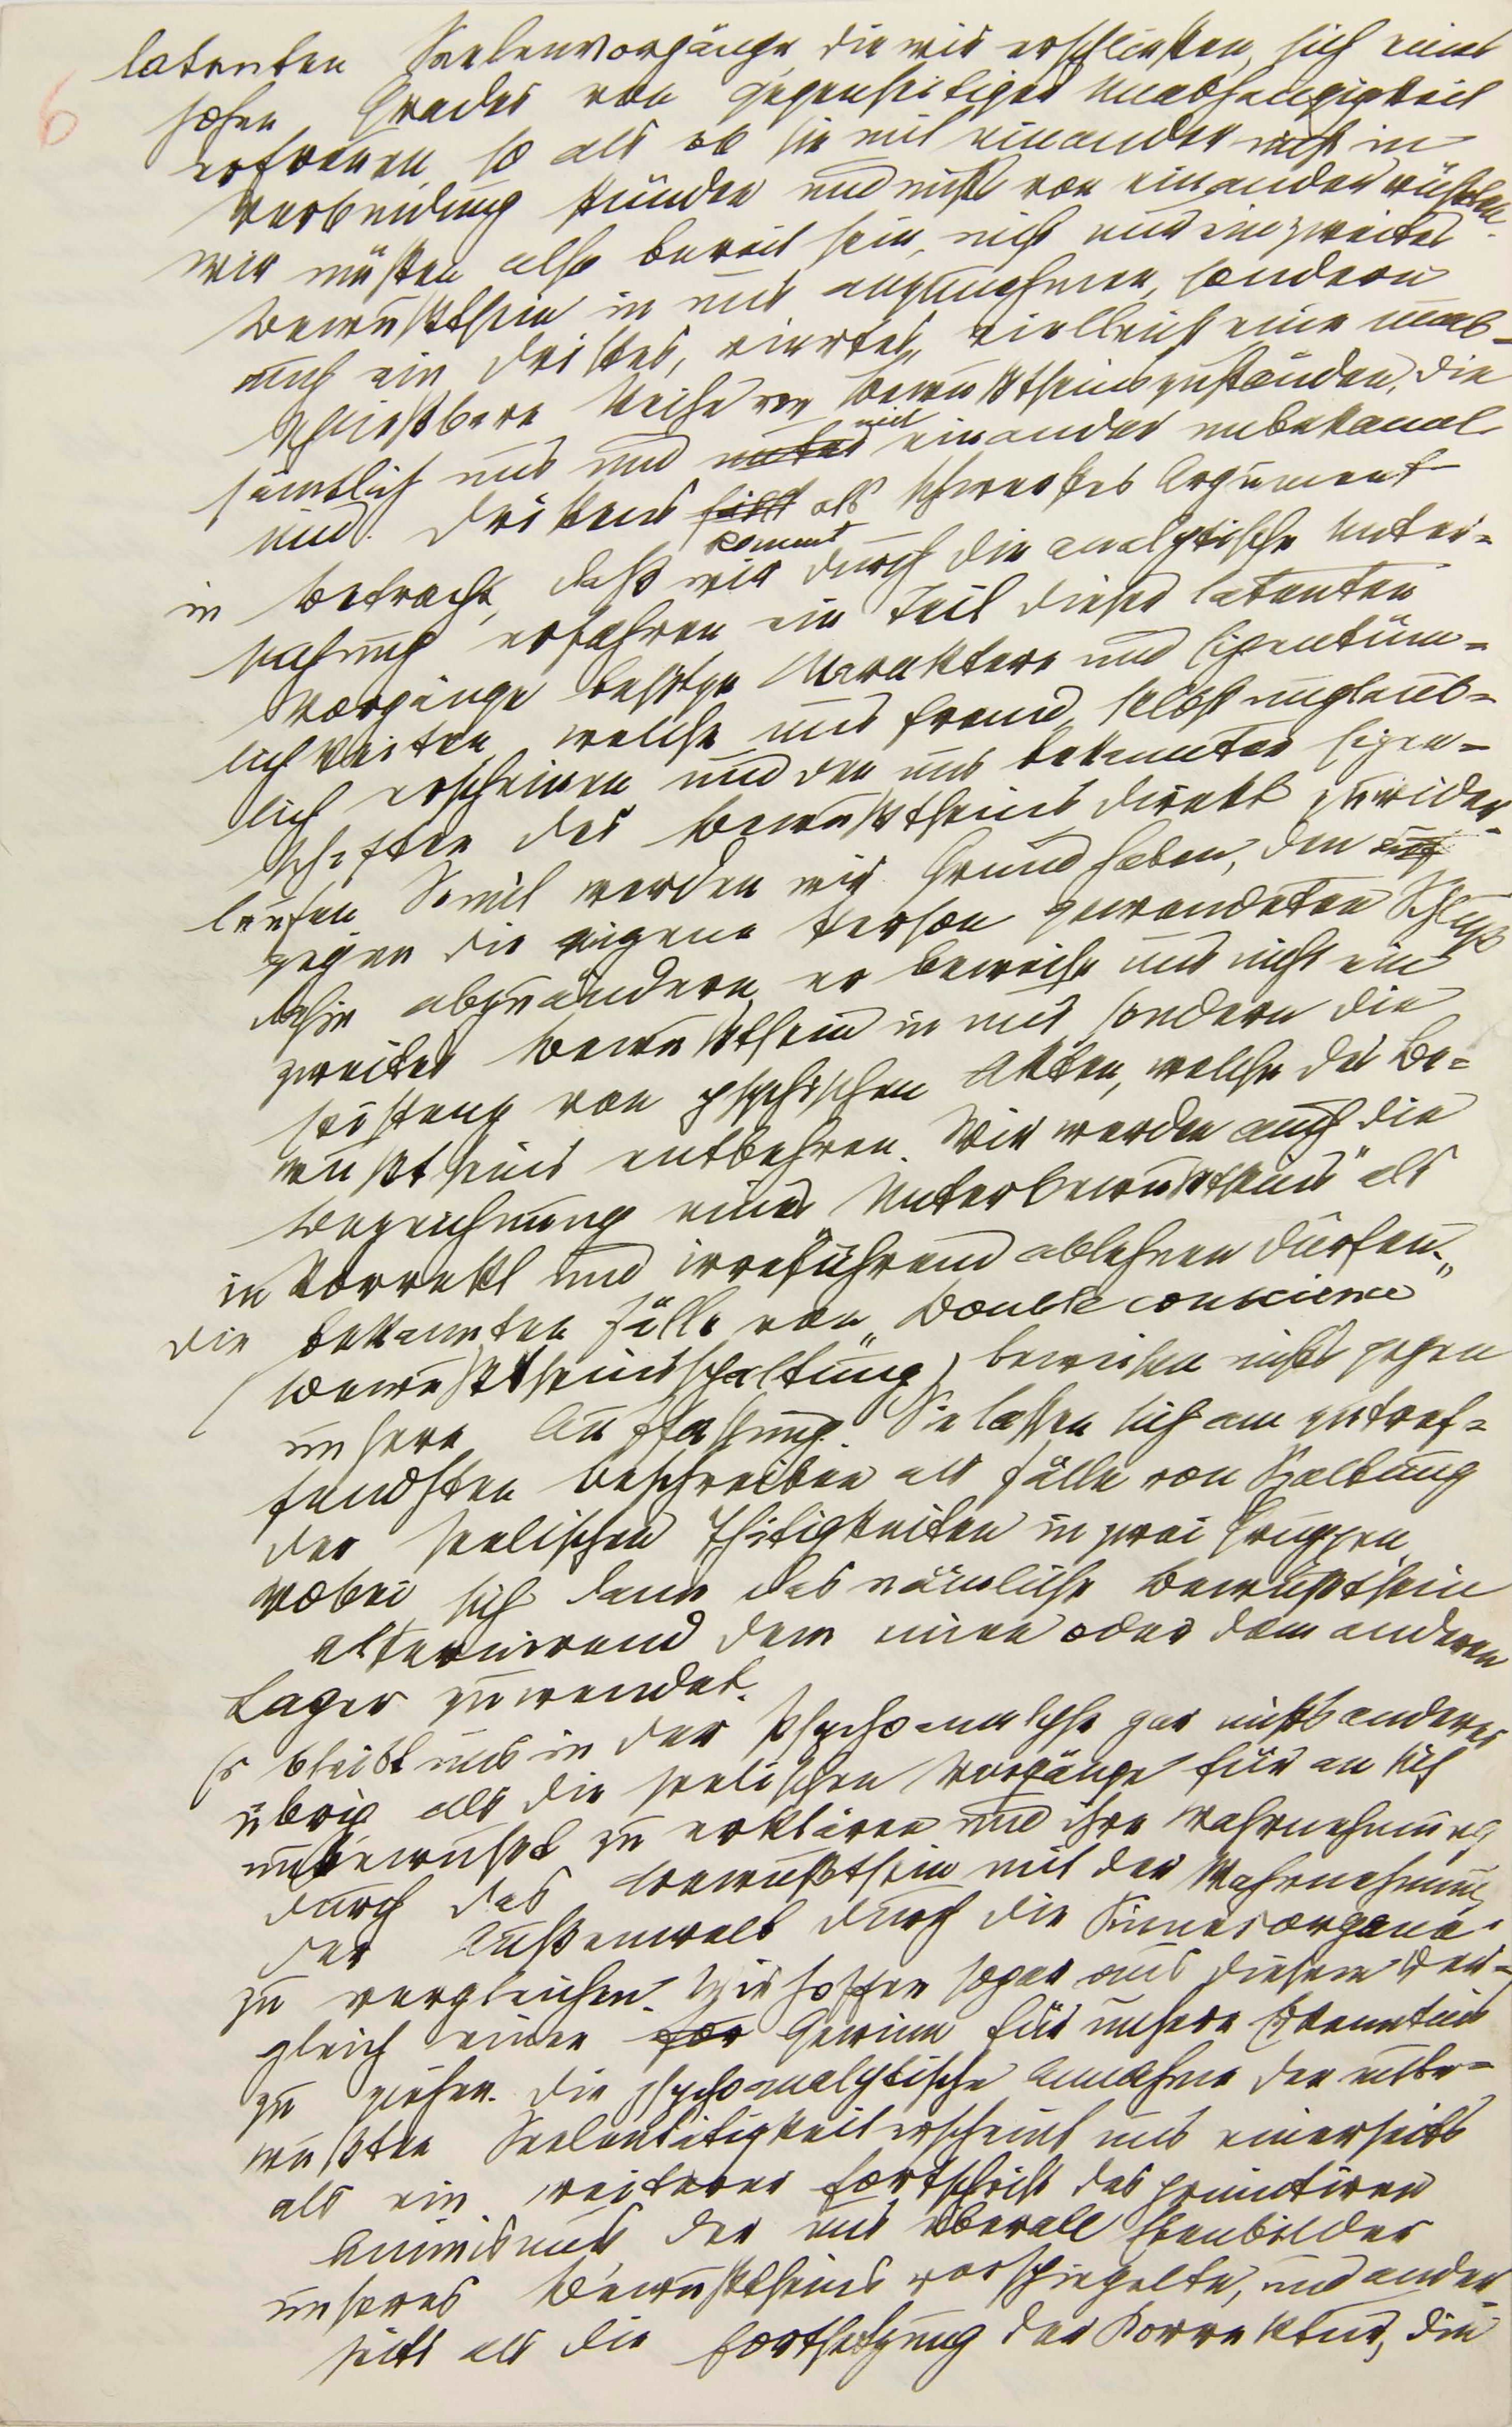 6
latenten Seelenvorgänge, die wir erschließen, sich eines
hohen Grades von gegenseitiger Unabhängigkeit
erfreuen, so als ob sie mit einander nicht in
Verbindung stünden und nichts von einander wüßten.
Wir müßten also bereit sein, nicht nur ein zweites
Bewußtsein in uns anzunehmen, sondern
auch ein drittes, viertes, vielleicht eine unab-
schließbare Reihe von Bewußtseinszuständen, die
sämtlich uns und unter mit einander unbekannt
sind. Drittens fällt kommt als schwerstes Argument
in Betracht, daß wir durch die analytische Unter-
suchung erfahren, ein Teil dieser latenten
Vorgänge besitze Charaktere und Eigentüm-
lichkeiten, welche uns fremd, selbst unglaub-
lich erscheinen und den uns bekannten Eigen-
schaften des Bewußtseins direkt zuwider-
laufen. Somit werden wir Grund haben, den auf
gegen die eigene Person gewendeten Schluß
dahin abzuändern, er beweise uns nicht ein
zweites Bewußtsein in uns, sondern die
Existenz von psychischen Akten, welche des Be-
wußtseins entbehren. Wir werden auch die
Bezeichnung eines „Unterbewußtseins" als
inkorrekt und irreführend ablehnen dürfen.
Die bekannten Fälle von „Double conscience"
(Bewußtseinsspaltung) beweisen nichts gegen
unsere Auffassung. Sie lassen sich am zutref-
fendsten beschreiben als Fälle von Spaltung
der seelischen Thätigkeiten in zwei Gruppen,
wobei sich dann das nämliche Bewußtsein
alternirend dem einen oder dem anderen
Lager zuwendet.
Es bleibt uns in der Psychoanalyse gar nichts anderes
übrig, als die seelischen Vorgänge für an sich
unbewußt zu erklären und ihre Wahrnehmung
durch das Bewußtsein mit der Wahrnehmung
der Außenwelt durch die Sinnesorgane
zu vergleichen. Wir hoffen sogar aus diesem Ver-
gleich einen Gewinn für unsere Erkenntnis
zu ziehen. Die psychoanalytische Annahme der unbe-
wußten Seelentätigkeit erscheint uns einerseits
als ein weiterer Fortschritt des primitiven
Animismus, der uns überall Ebenbilder
unseres Bewußtseins vorspiegelte, und ander-
seits als die Fortsetzung der Korrektur, die